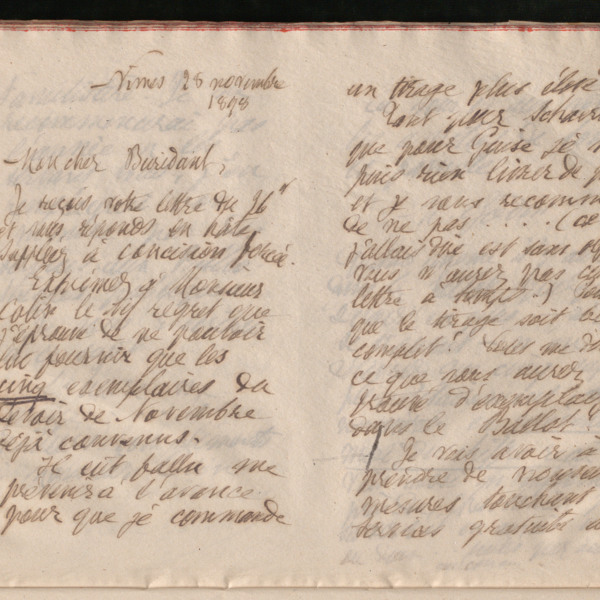 Nimes 28 novembre
1898
Mon cher Buridant,
Je reçois votre lettre du 26
et vous réponds en hâte
suppliez à concision forcée.
Exprimez à Monsieur
Colin le vif regret que
j'éprouve de ne pouvoir
lui fournir que les
cinq exemplaires du
Devoir de Novembre
déjà convenus.
Il eût fallu me
prévenir à l'avance
pour que je commande
un tirage plus élevé
Tout pour
que pour Guise je n
puis rien livrer de p
et je vous recomm
de ne pas .... (ce
j'allais dire est sans
vous n'aurez pas
lettre à temps.)
que le tirage soit
complet!
ce que vous aurez
trouvé d'exemplai
dans le Ballot.
Je vais avoir à
prendre de nouv
mesures touchant
services gratuits